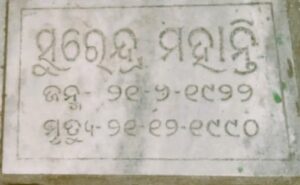 ସୁରେନ୍ଦ୍ର ମହାନ୍ତି
ଜନ୍ମ - ୨୧-୬-୧୯୨୨
ମୃତ୍ୟୁ - ୨୧-୧୨-୧୯୯୦